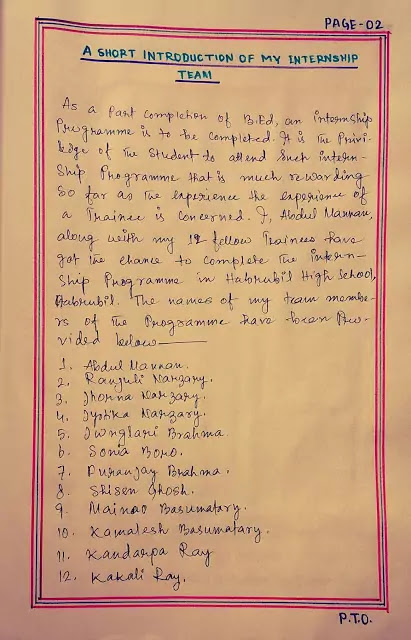 PAGE-02
A SHORT INTRODUCTION OF MY INTERNSHIP
TEAM
As a Part Completion of B.Ed, an internship
Programme is to be completed. It is The Privi-
ledge of The Student to attend Such intern-
Ship Programme that is much rewarding
So far as The experience the experience of
a Trainee is concerned. I, Abdul Mannan,
along with my 12 fellow Trainees have
got The chance to complete The intern-
ship Programme in Habrubil High School,
Habrubil. The names of my team membe-
rs of The Programme have been Pro-
vided below
1. Abdul Mannan.
2. Ranjuli Narzary.
3. Jhorna Narzary.
4. Jyotika Narzary.
5. Jwnglari Brahma.
6. Sonia Boro.
7. Puranjay Brahma.
8. Shisen Ghosh.
9. Mainao Basumatary.
10. Kamalesh Basumatary.
11. Kandarpa Ray
12. Kakali Ray.
P.T.O.